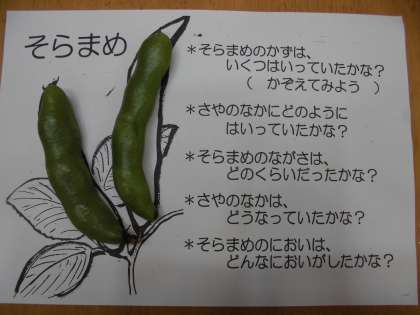 そらまめ
＊そらまめのかずは、
いくつはいっていたかな？
（　かぞえてみよう　）
＊さやのなかにどのように
はいっていたかな？
＊そらまめのながさは、
どのくらいだったかな？
＊さやのなかは、
どうなっていたかな？
＊そらまめのにおいは、
どんなにおいがしたかな？